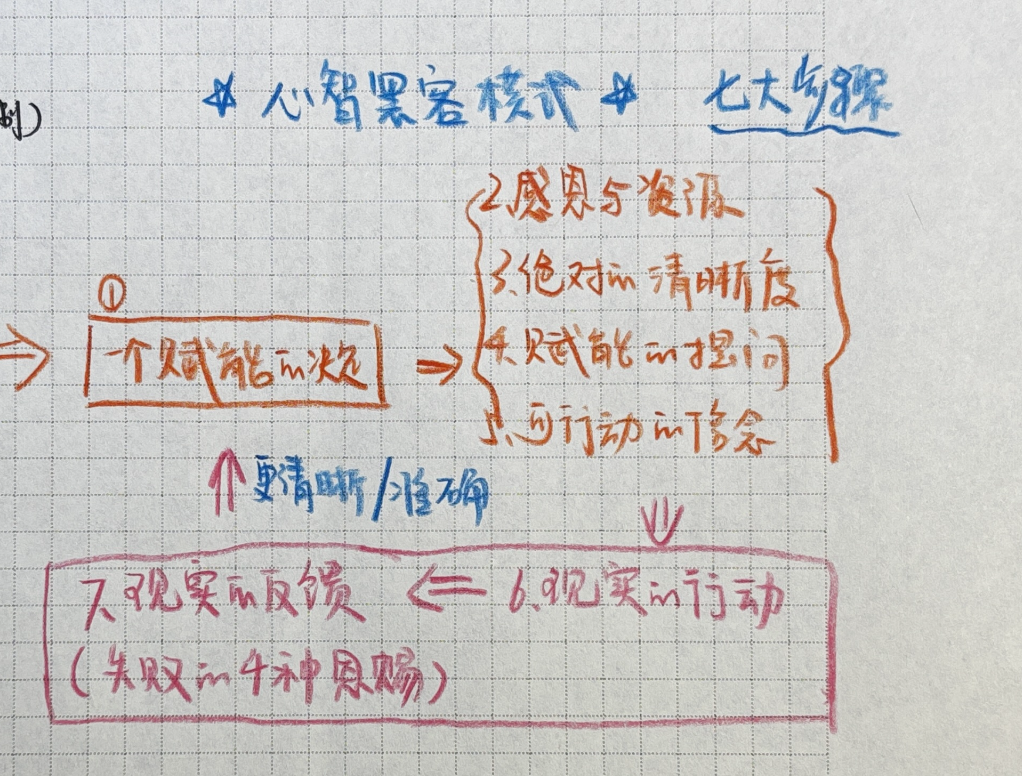 * 心智黑客模式 * 七大步骤
制)
①
一个赋能的决定
2.感恩与资源
3.绝对的清晰度
4.赋能的提问
5.可行动的信念
更清晰/准确
7.现实的反馈
6.现实的行动
(失败的4种恩赐)